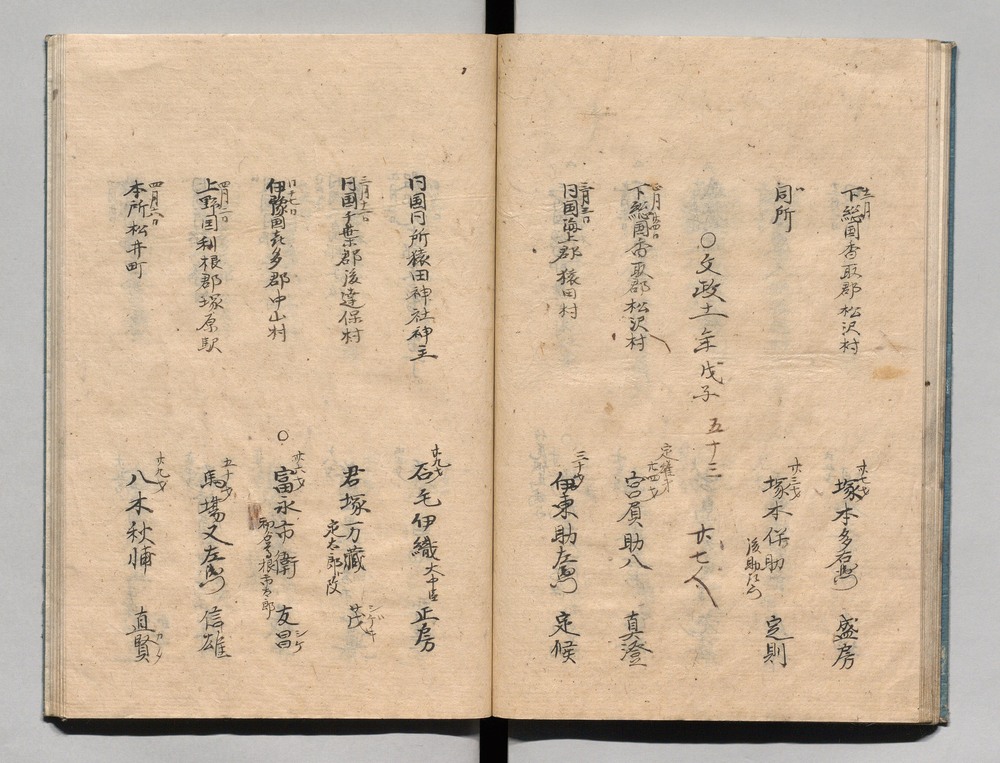 十一月
下総国香取郡松沢村 廿七才 塚本多右衛門 盛房
同所 廿三才 塚本保助 定則
後助左衛門
○文政十一年戊子 五十三 廿七人
正月廿四日
下総国香取郡松沢村 廿四才 宮負助八 真澄
定雄才
二月三日
同国海上郡猿田村 三十才 伊東助左衛門 定候
同国同所猿田神社神主 廿九才 石毛伊織 大中臣 正房
三月十一日
同国千葉郡後達保村 君塚万蔵 茂 シゲル
定太郎ト改
同十七日
伊豫国喜多郡中山村 ○ 廿六才 富永市衛 友昌 シゲ
初名曽根市太郎
四月一日
上野国利根郡塚原駅 五十才 馬場又左衛門 信雄
四月六日
本所松井町 廿九才 八木秋脯 直賢 カタ